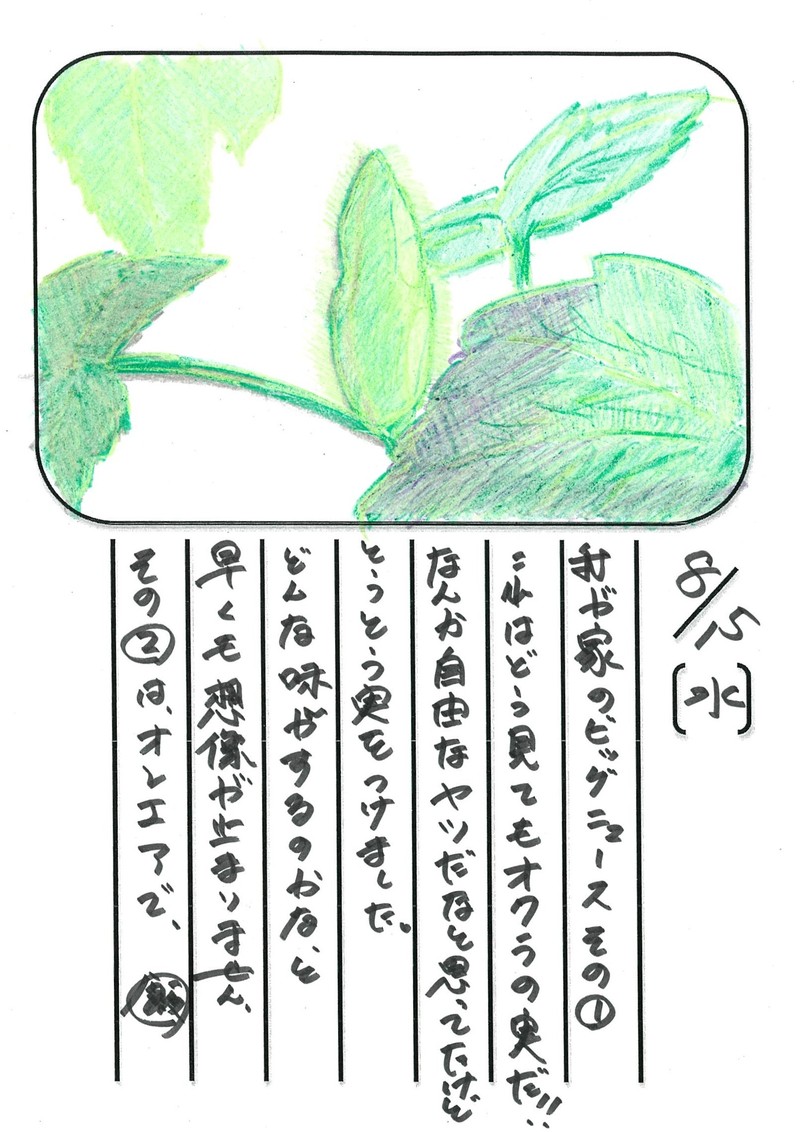 8/15
[水]
我が家のビッグニュースその①
これはどう見てもオクラの実だ!!
なんか自由なヤツだなと思ってたけど
とうとう実をつけました。
どんな味がするのかな、と
早くも想像が止まりません。
その②は、オンエアで、